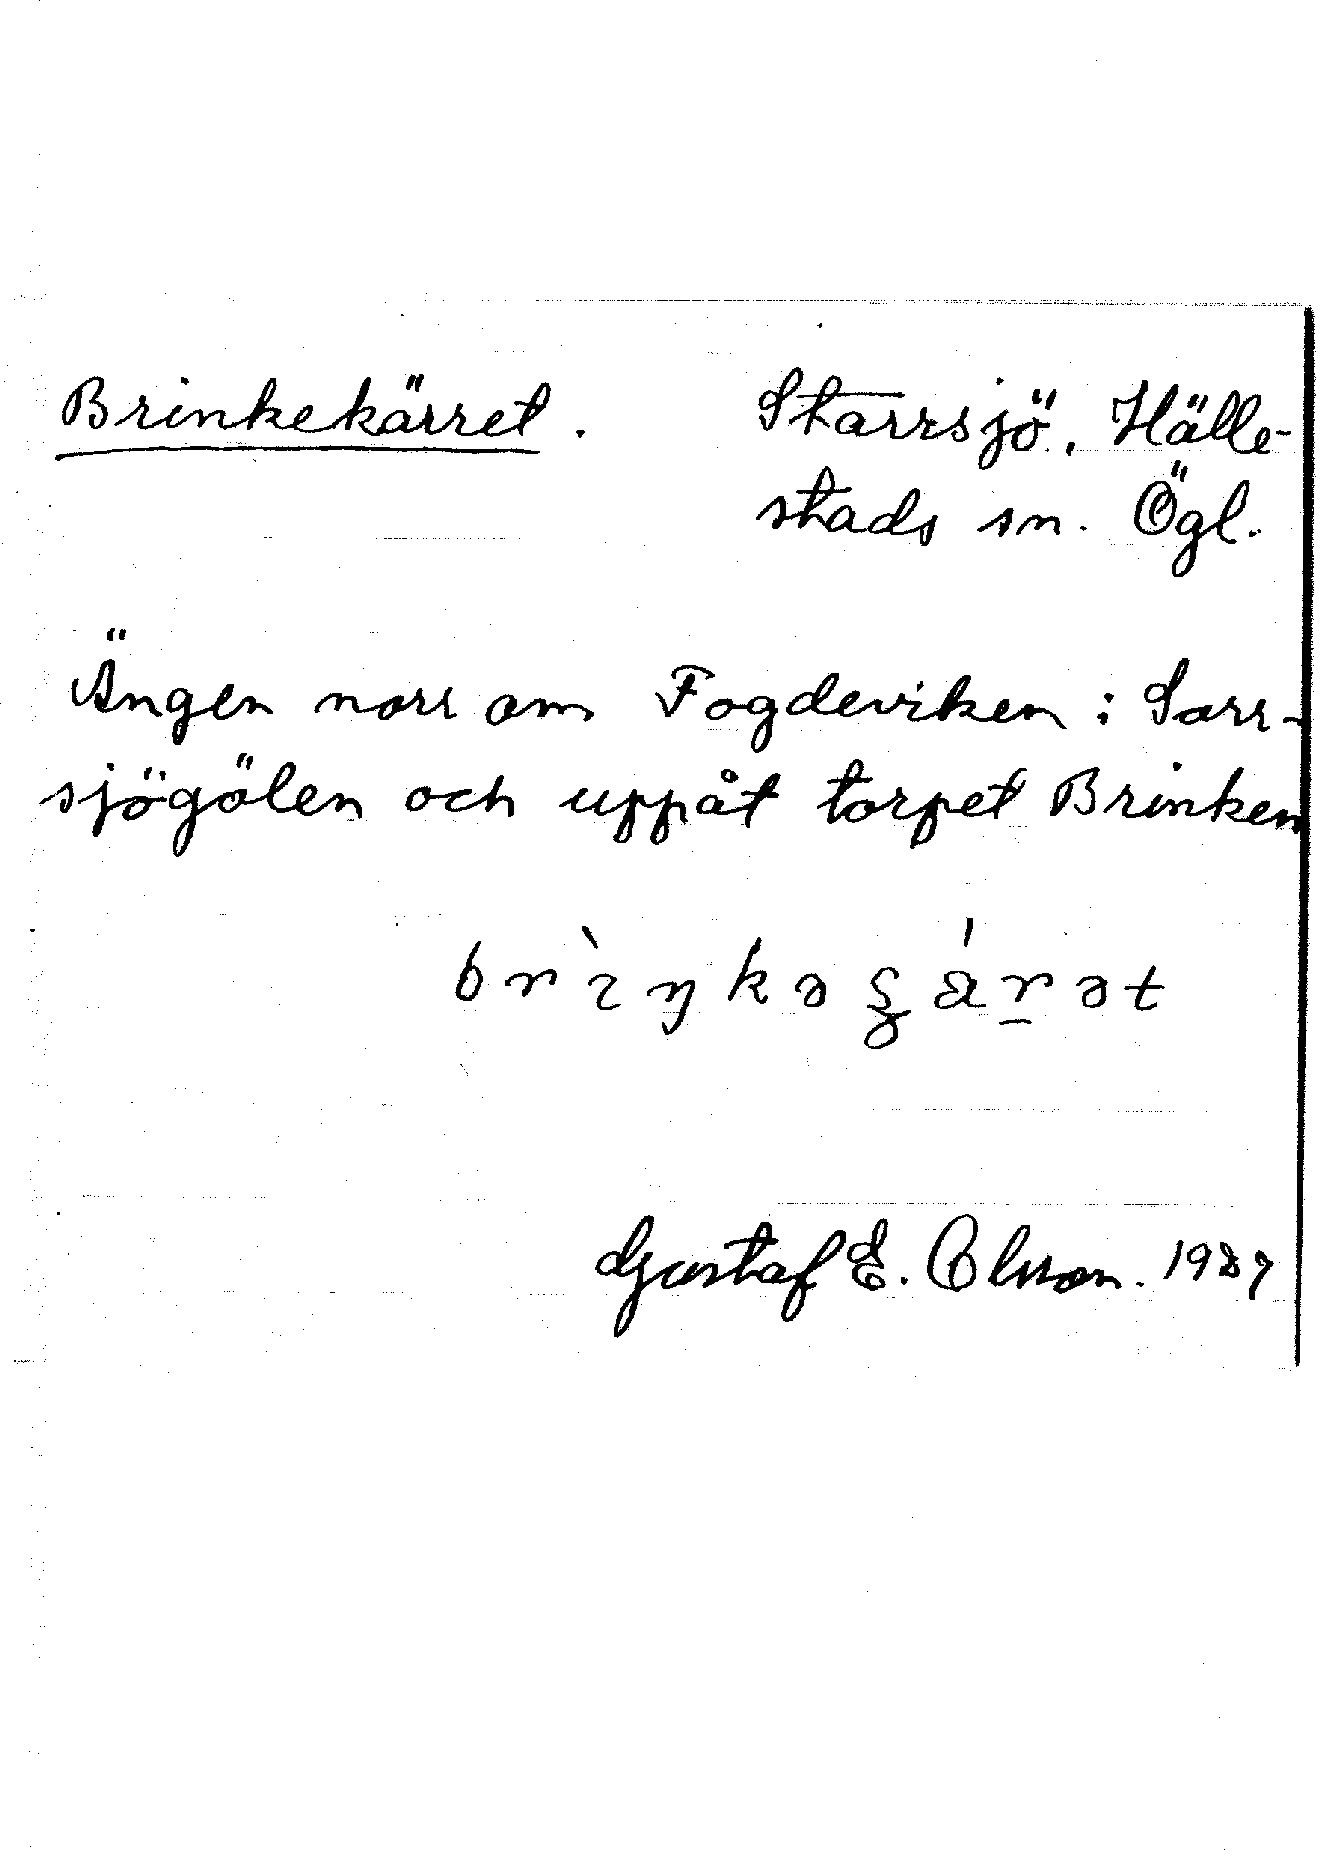 Brinkekärret. Starrsjö, Hälle-
stads sn. Ögl.
Ängen norr om Fogdeviken i Sarr-
sjögölen och uppåt torpet Brinken
Gustaf E. Olsson. 1987